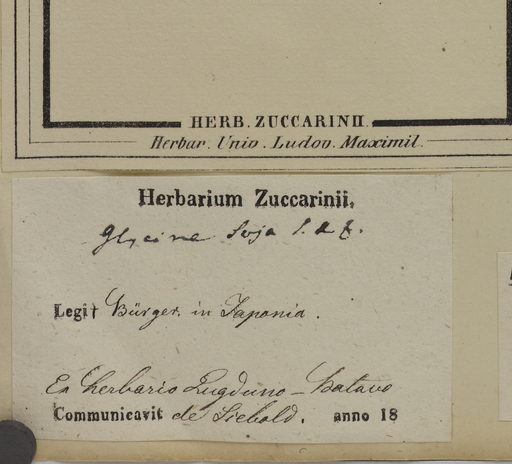 HERB. ZUCCARINII.
Herbar. Univ. Ludov. Maximil.
Herbarium Zuccarinii.
Glycine Soja S. & Z.
Legit Bürger. in Japonia.
Ex herbario Lugduno-Batavo
Communicavit de Siebold. anno 18